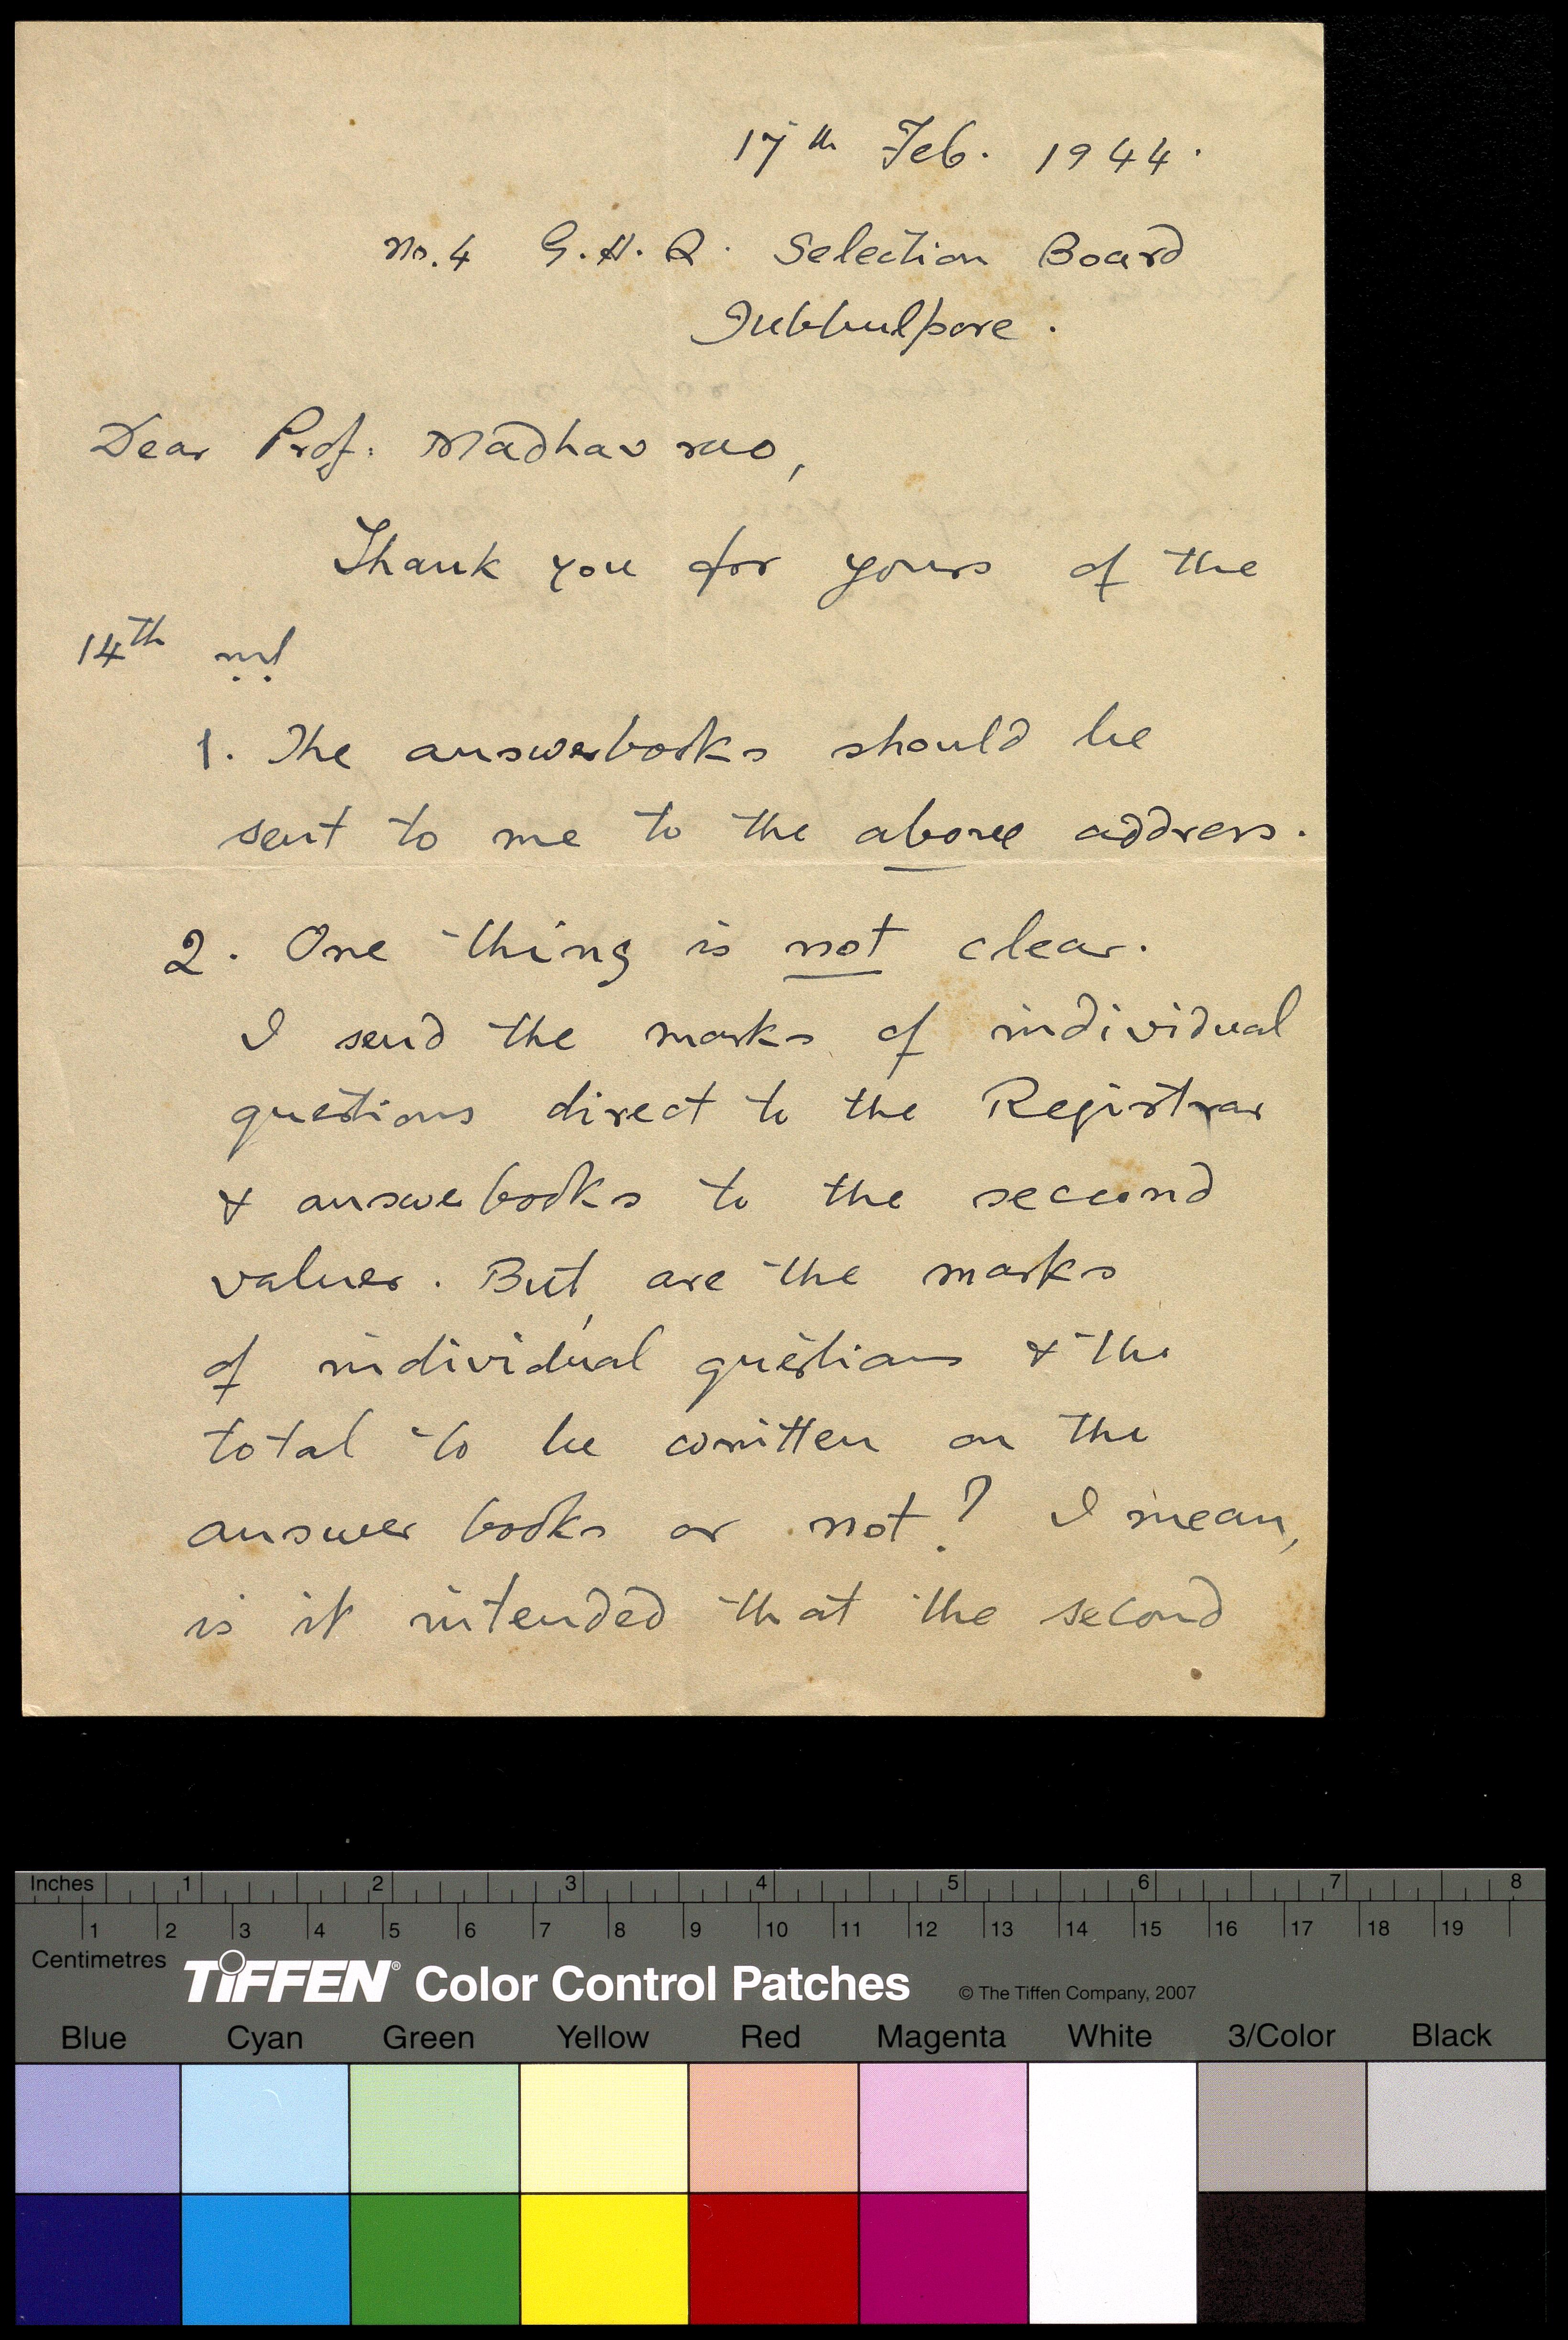 17th Feb. 1944.
No. 4 G.H.Q. Selection Board
Jubbulpore.
Dear Prof. Madhav rao,
Thank you for yours of the
14th inst
1. The answerbooks should be
sent to me to the above address.
2. One thing is not clear.
I send the marks of individual
questions direct to the Registrar
& answerbooks to the second
valuer. But, are the marks
of individual questions & the
total to be written on the
answer books or not? I mean,
is it intended that the second
Inches 1 2 3 4 5 6 7 8
1 2 3 4 5 6 7 8 9 10 11 12 13 14 15 16 17 18 19
Centimetres
TIFFEN® Color Control Patches © The Tiffen Company, 2007
Blue Cyan Green Yellow Red Magenta White 3/Color Black